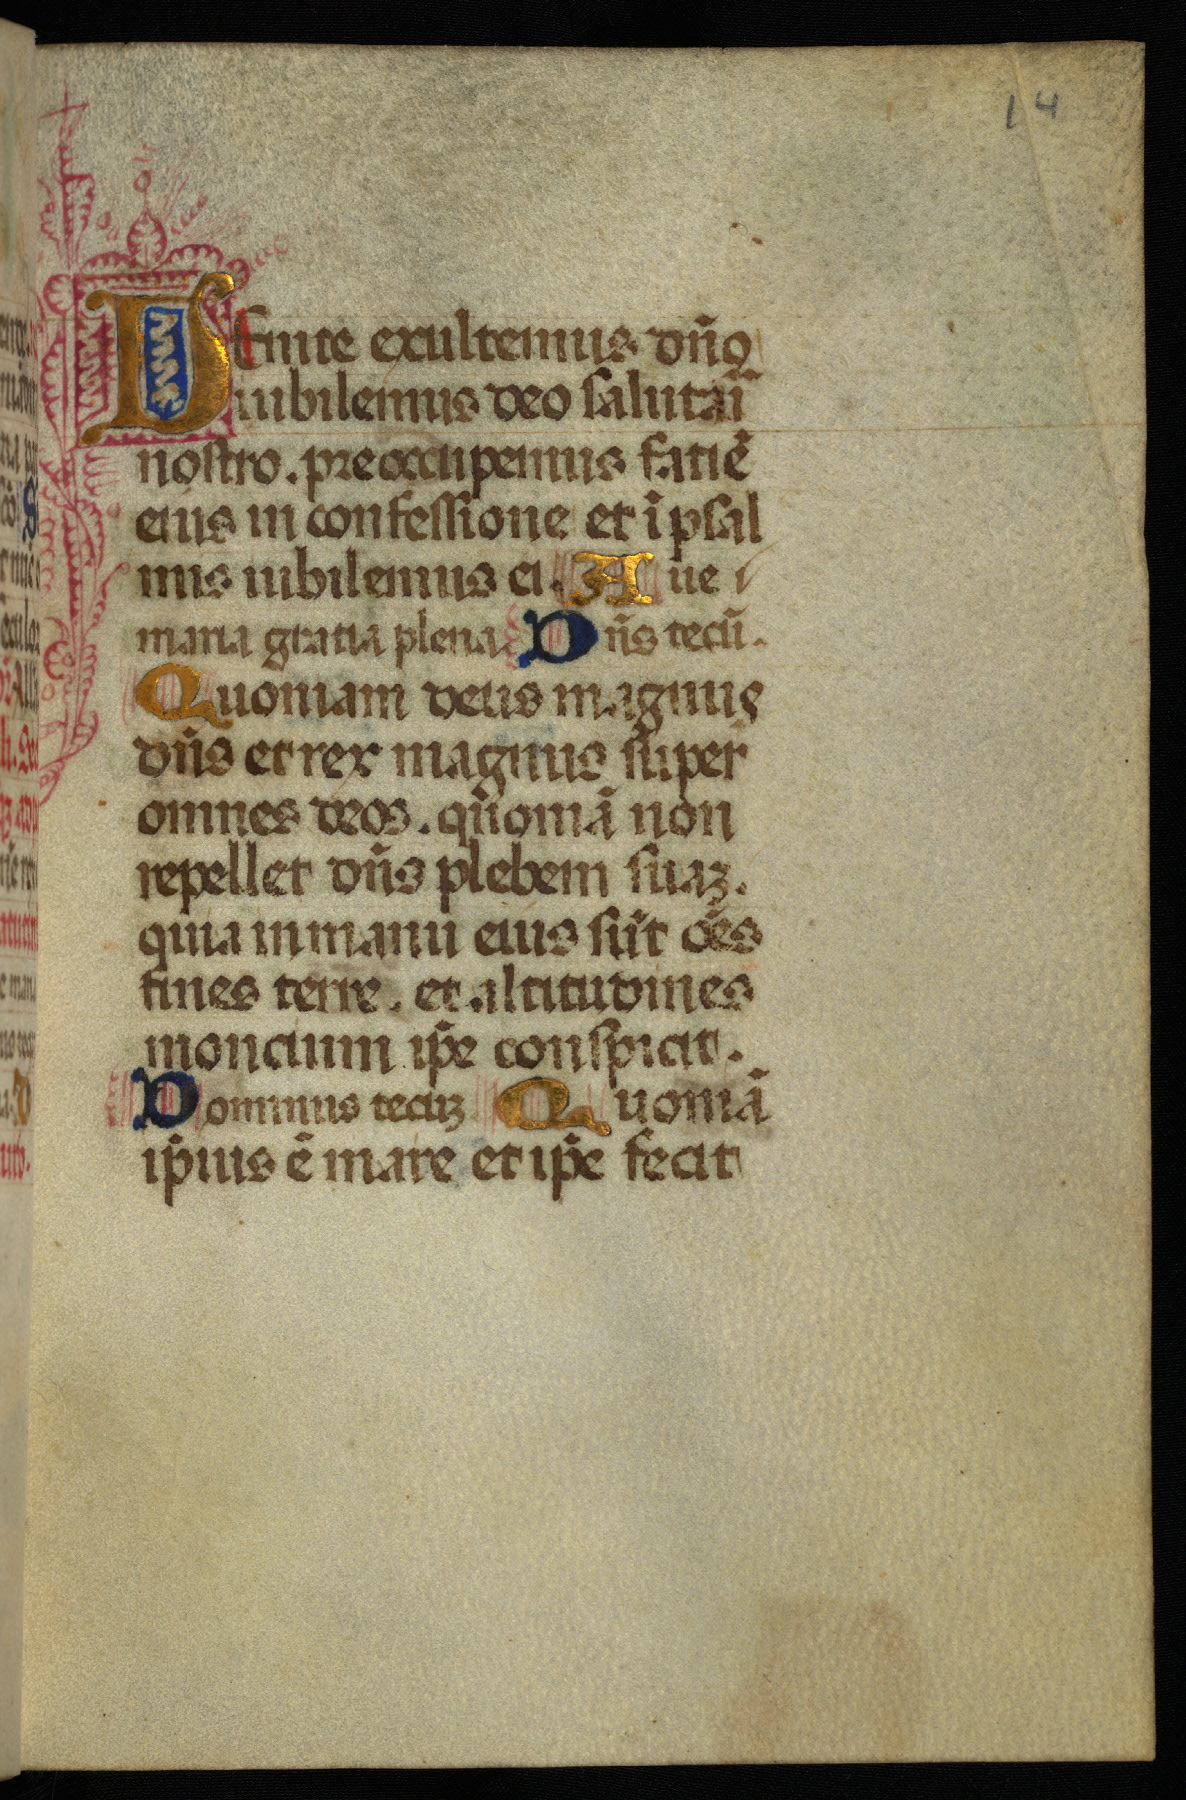 14
Venite exultemus dn̄o
iubilemus deo salutari
nostro. preoccupemus fatiē
eius in confessione et ī psal
mis iubilemus ei. Aue
maria gratia plena. Dn̄s tecū.
Quoniam deus magnus
dn̄s et rex magnus super
omnes deos. quoniā non
repellet dn̄s plebem suaꝫ.
quia in manu eius sūt oēs
fines terre. et altitudines
moncium ip̄e conspicit.
Dominus tecuꝫ Quoniā
ip̄ius ē mare et ip̄e fecit